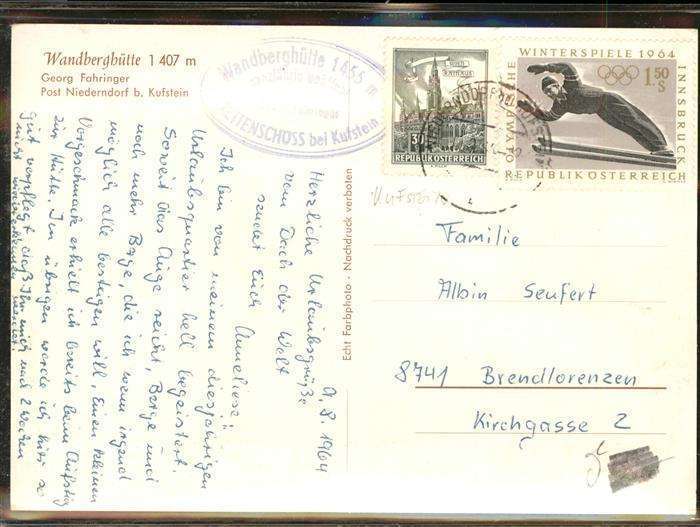 Wandberghütte 1 407 m
Georg Fahringer
Post Niederndorf b. Kufstein
Wandberghütte 1455 m
RETTENSCHÖSS bei Kufstein
WIEN
RATHAUS
30
REPUBLIK ÖSTERREICH
OLYMPISCHE WINTERSPIELE 1964 INNSBRUCK
1.50
S
REPUBLIK ÖSTERREICH
Kufstein
9. 8. 1964
Herzliche Urlaubsgrüße
vom Dach der Welt
sendet Euch
Anneliese!
Ich bin von meinem diesjährigen
Urlaubsquartier hell begeistert.
Soweit das Auge reicht, Berge und
noch mehr Berge, die ich wenn irgend
möglich alle besteigen will. Einen kleinen
Vorgeschmack erhielt ich bereits beim Aufstieg
zur Hütte. Im übrigen werde ich hier so
gut verpflegt, daß Ihr mich nach 2 Wochen
nicht wiedererkennen werdet.
Echt Farbphoto · Nachdruck verboten
Familie
Albin Seufert
8741 Brendlorenzen
Kirchgasse 2